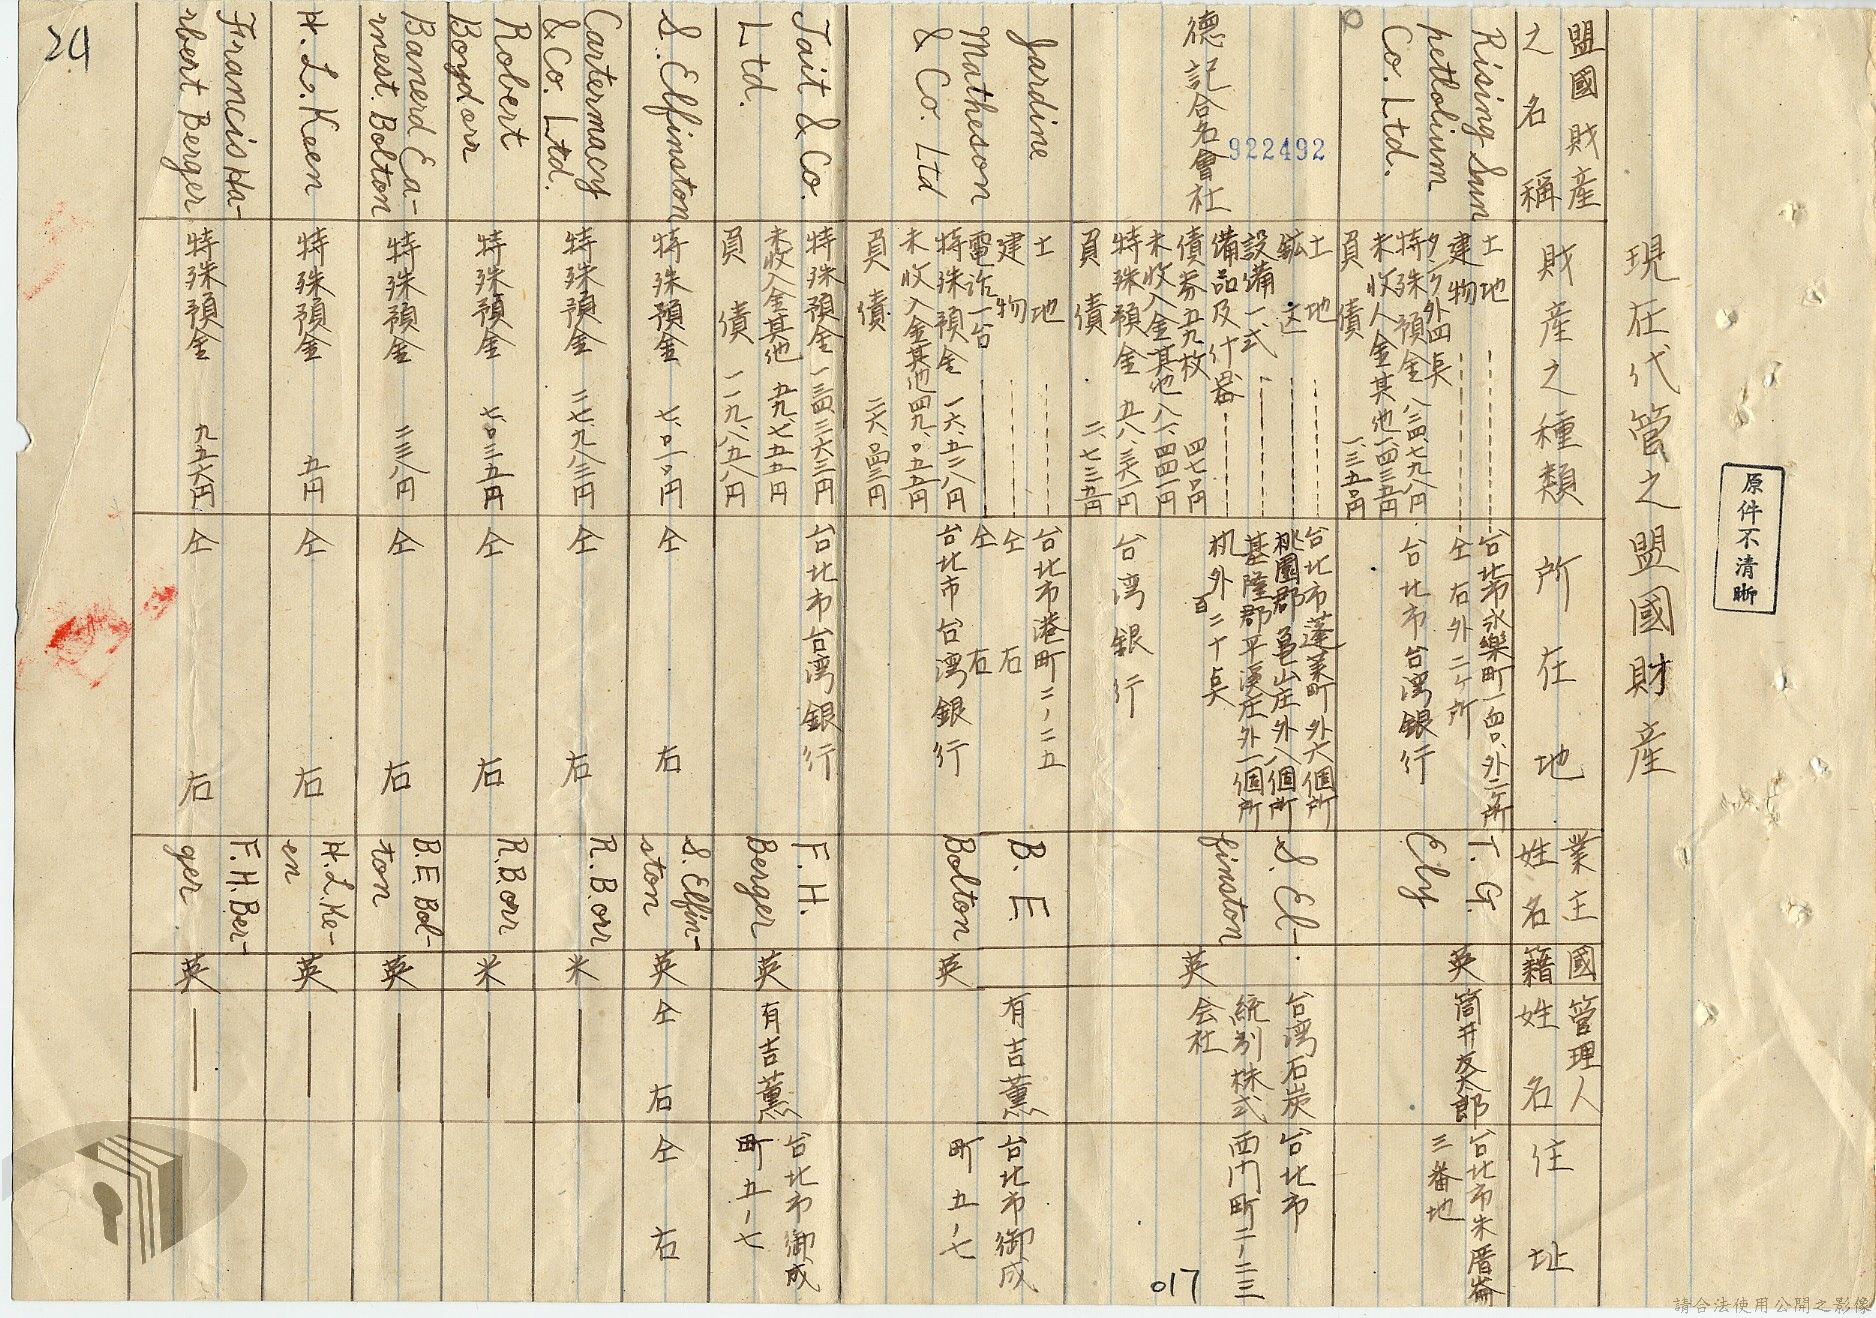 現在代管之盟國財産
原件不清晰
盟國財産
之名稱
財産之種類
所在地
業主
姓名
國
籍
管理人
姓名
住址
Rising Sun
petlolium
Co. Ltd.
土地
建物
タンク外四臭
特殊預金 八三四、七九八円
未收入金其他 一四三五円
負債 一、三五〇円
台北市永樂町一ノ四〇、外一ヶ所
仝右外二ヶ所
台北市台湾銀行
T. G.
Ely
英
筒井友太郎
台北市朱厝崙
三番地
922492
德記合名會社
土地
鉱区
設備一式
備品及什器
債券五九枚 四七〇円
未收入金其他 八一、四四一円
特殊預金
負債
台北市蓬萊町外六個所
桃園郡亀山庄外八個所
基隆郡平溪庄外一個所
机外百二十臭
台湾銀行
S. El-
finston
英
台湾石炭
統制株式
会社
台北市
西門町二ノ二三
Jardine
Matheson
& Co. Ltd
土地
建物
電話一台
特殊預金 一六、五二八円
未收入金其他 四九、〇五五円
負債
台北市港町二ノ二五
仝右
仝右
台北市台湾銀行
B. E.
Bolton
英
有吉薫
台北市御成
町五ノ七
Tait & Co.
Ltd.
特殊預金 一三四、三六三円
未收入金其他 五九、七五五円
負債 一一九、八五八円
台北市台湾銀行
F. H.
Berger
英
有吉薫
台北市御成
町五ノ七
S. Elfinston
特殊預金 七、〇一〇円
仝右
S. Elfin-
ston
英
仝右
仝右
Cartermacy
& Co. Ltd.
特殊預金 二七、九八三円
仝右
R. B. orr
米
Robert
Boyd orr
特殊預金 七、〇三五円
仝右
R. B. orr
米
Banerd Ea-
rnest. Bolton
特殊預金 二三八円
仝右
B. E. Bol-
ton
英
H. L. Keen
特殊預金 五円
仝右
H. L. Ke-
en
英
Francis Ha-
rbert Berger
特殊預金 九五六円
仝右
F. H. Ber-
ger
英
24
017
請合法使用公開之影像